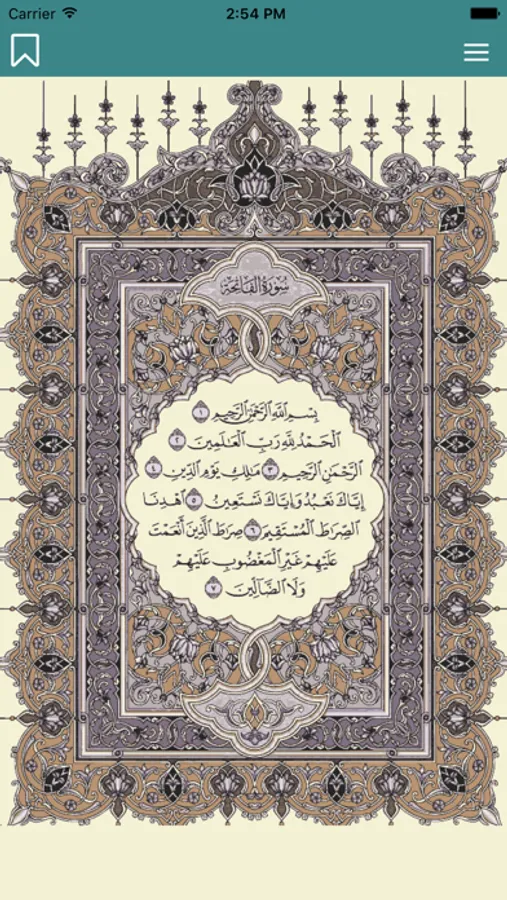 Carrier 2:54 PM
سُورَةُ الفَاتِحَةِ
بِسْمِ اللَّهِ الرَّحْمَٰنِ الرَّحِيمِ ١
الْحَمْدُ لِلَّهِ رَبِّ الْعَالَمِينَ ٢
الرَّحْمَٰنِ الرَّحِيمِ ٣ مَالِكِ يَوْمِ الدِّينِ ٤
إِيَّاكَ نَعْبُدُ وَإِيَّاكَ نَسْتَعِينُ ٥ اهْدِنَا
الصِّرَاطَ الْمُسْتَقِيمَ ٦ صِرَاطَ الَّذِينَ أَنْعَمْتَ
عَلَيْهِمْ غَيْرِ الْمَغْضُوبِ عَلَيْهِمْ
وَلَا الضَّالِّينَ ٧